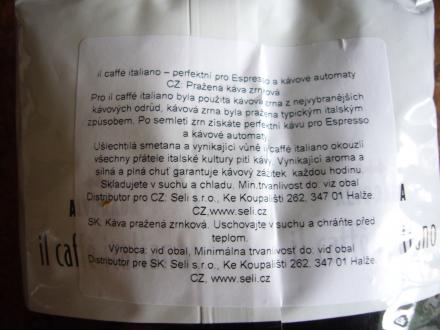 il caffé italiano – perfektní pro Espresso a kávove automaty
CZ: Pražená káva zrnková
Pro il caffé italiano byla použita kávová zrna z nejvybranějších
kávových odrůd, kávová zrna byla pražena typickým italským
způsobem. Po semletí zrn získáte perfektní kávu pro Espresso
a kávové automaty
Ušlechtilá smetana a vynikající vůně il caffé italiano okouzlí
všechny přátele italské kultury pití kávy. Vynikající aroma a
silná a plná chuť garantuje kávový zážitek každou hodinu.
Skladujete v suchu a chladu. Min.trvanlivost do: viz obal
Distributor pro CZ: Seli s.r.o., Ke Koupališti 262, 347 01 Halže,
CZ,www.seli.cz
SK: Káva pražená zrnková. Uschovajte v suchu a chráňte před
teplom.
Výrobca: viď obal, Minimálna trvanivosť do: viď obal
Distributor pre SK: Seli s.r.o., Ke Koupališti 262, 347 01 Halže,
CZ, www.seli.cz
A
A
il caf
no